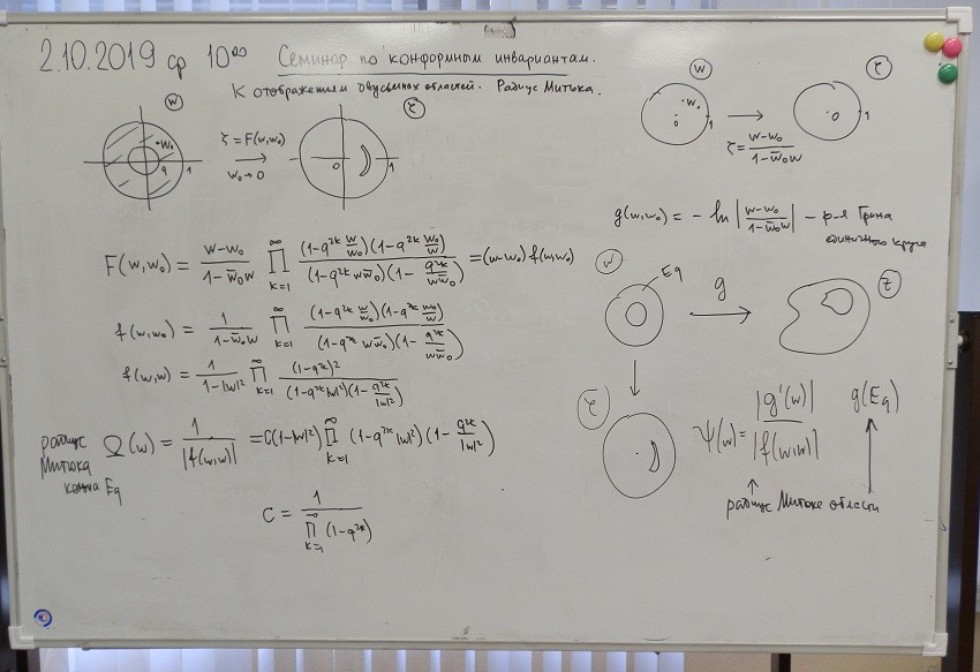 2.10.2019 ср 10⁰⁰ Семинар по конформным инвариантам.
К отображениям двусвязных областей. Радиус Митюка.
w
ζ = F(w,w₀)
w₀ → 0
ζ
w₀
q 1
0 1
w
w₀
0 1
ζ = (w-w₀)/(1-w̄₀w)
ζ
0 1
g(w,w₀) = - ln |(w-w₀)/(1-w̄₀w)| - ф-я Грина
единичного круга
F(w,w₀) = (w-w₀)/(1-w̄₀w) ∏_{k=1}^{∞} ((1-q^{2k} w/w₀)(1-q^{2k} w₀/w))/((1-q^{2k} w w̄₀)(1 - q^{2k}/(w w̄₀))) = (w-w₀) f(w,w₀)
f(w,w₀) = 1/(1-w̄₀w) ∏_{k=1}^{∞} ((1-q^{2k} w/w₀)(1-q^{2k} w₀/w))/((1-q^{2k} w w̄₀)(1 - q^{2k}/(w w̄₀)))
f(w,w) = 1/(1-|w|²) ∏_{k=1}^{∞} (1-q^{2k})²/((1-q^{2k}|w|²)(1 - q^{2k}/|w|²))
радиус
Митюка
кольца Eq
Ω(w) = 1/|f(w,w)| = C(1-|w|²) ∏_{k=1}^{∞} (1-q^{2k}|w|²)(1 - q^{2k}/|w|²)
C = 1/∏_{k=1}^{∞} (1-q^{2k})
w
Eq
g
z
ζ
Ψ(w) = |g'(w)|/|f(w,w)|
g(Eq)
радиус Митюка области